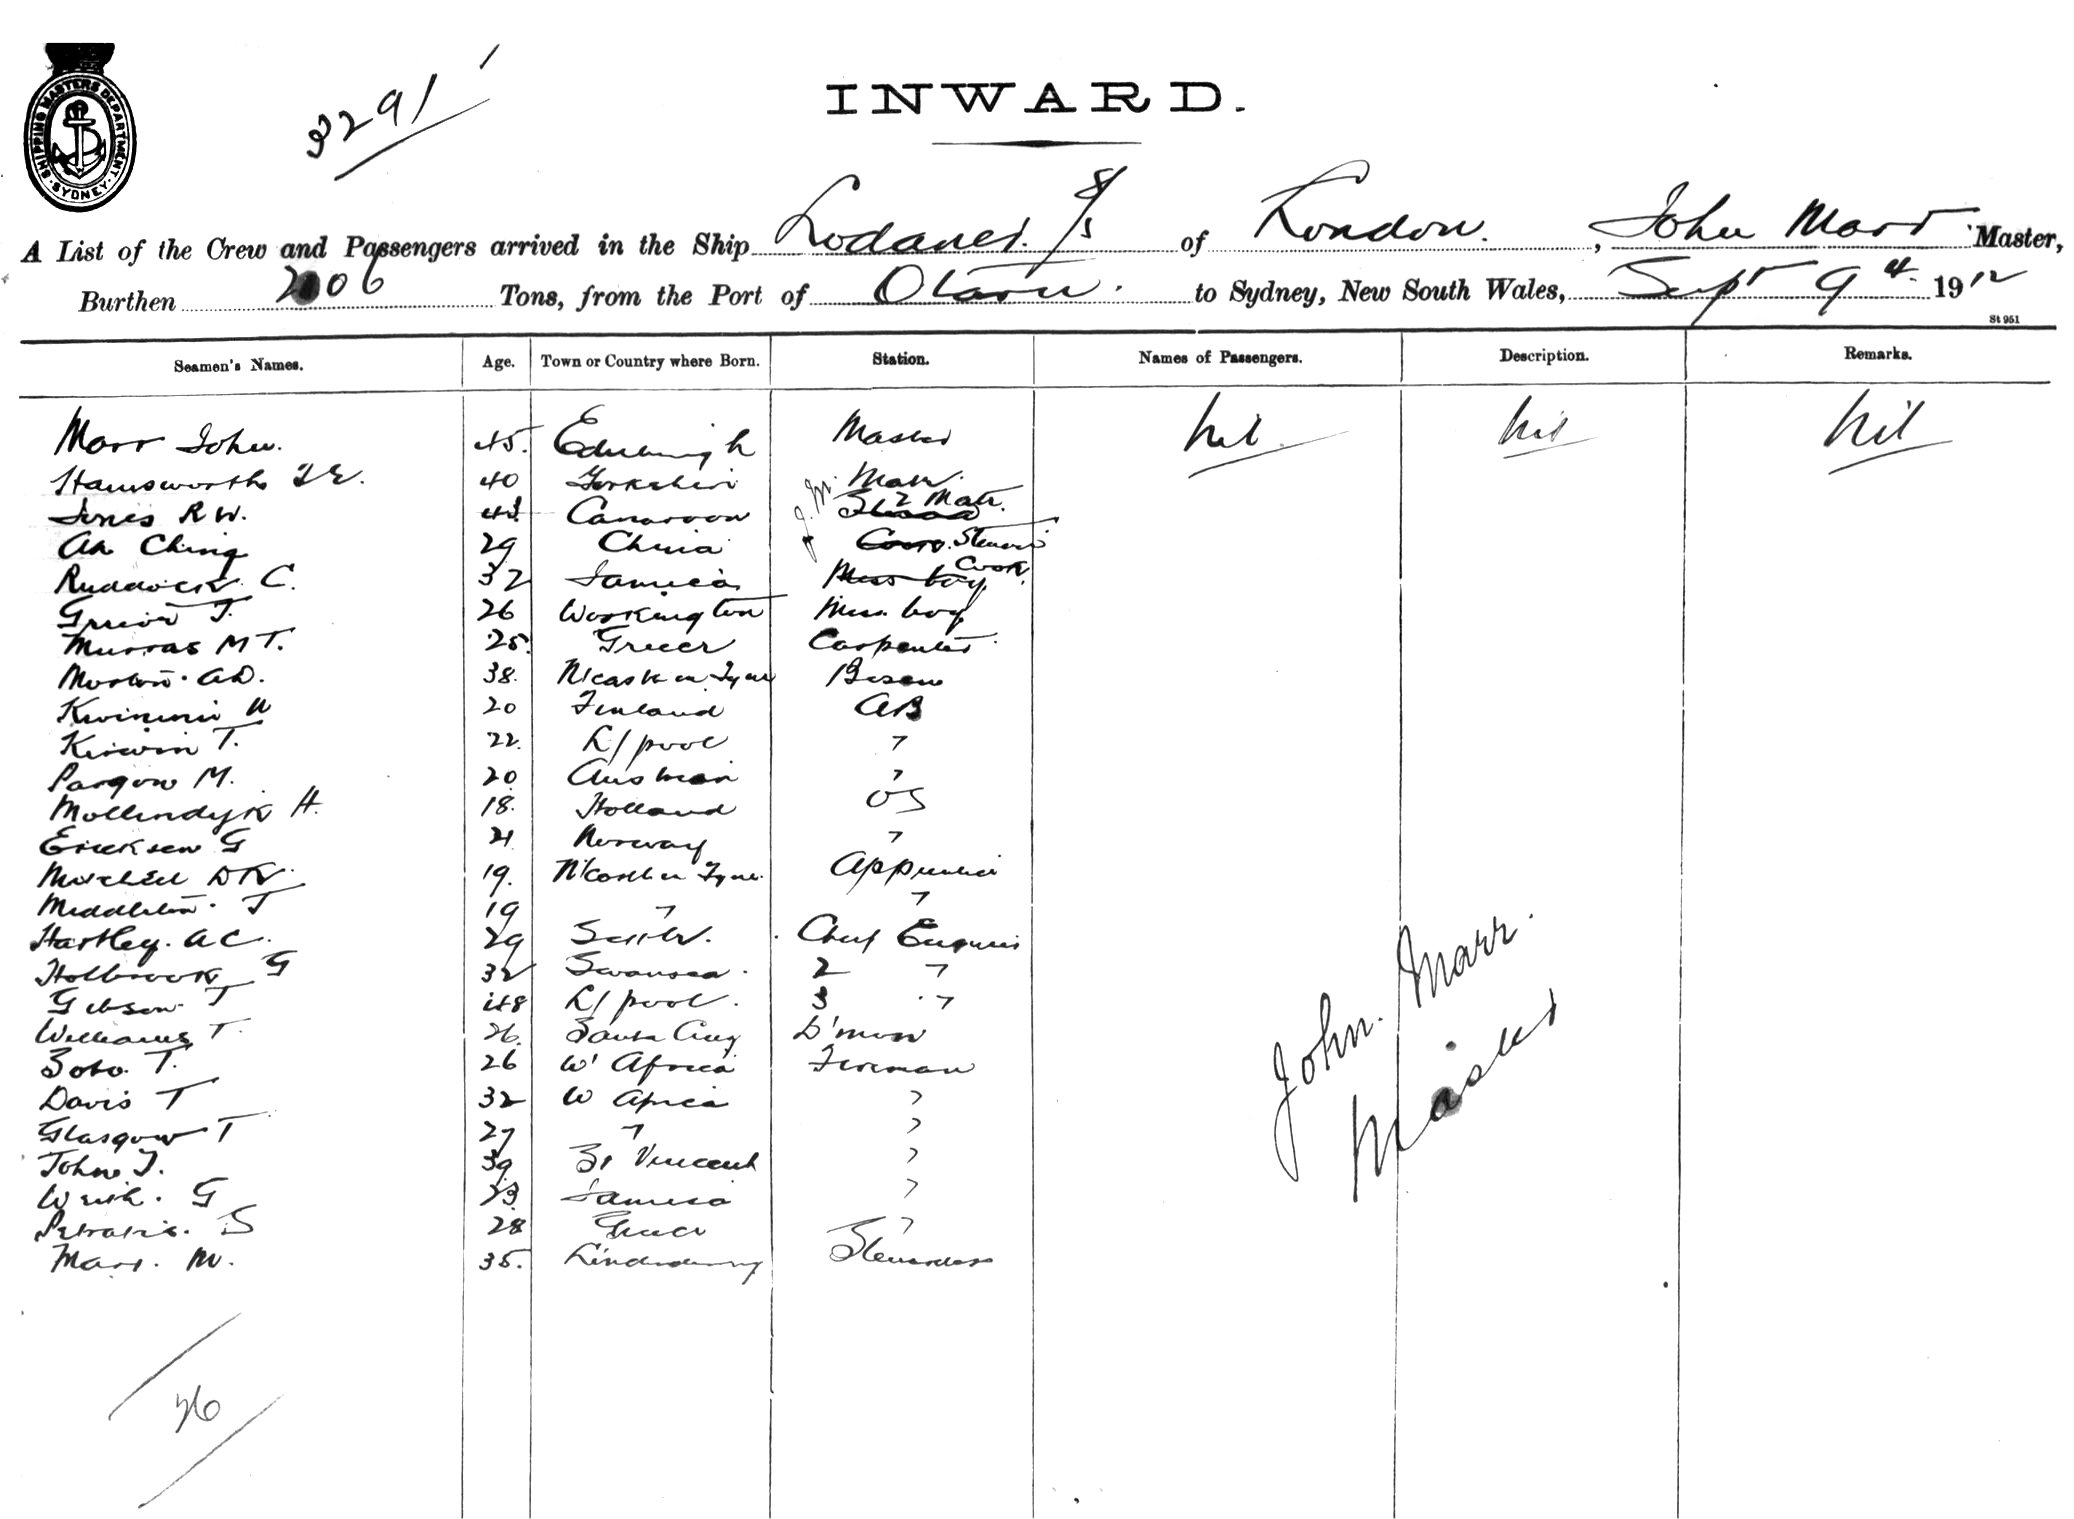 SHIPPING MASTERS DEPARTMENT. SYDNEY.
3291
INWARD.
A List of the Crew and Passengers arrived in the Ship S/S of London. , John Marr Master,
Burthen 2006 Tons, from the Port of to Sydney, New South Wales, Sept 9th 1912
St 951
Seamen's Names. Age. Town or Country where Born. Station. Names of Passengers. Description. Remarks.
Marr John. 45. Edinburgh Master nil. nil nil
40 Yorkshire Mate.
Jones R W. 2 Mate. J. M.
Ah Ching 29 China Steward
Ruddock C. 32 Jamica Mess boy Cook.
26 Workington Mess boy
25. Greece Carpenter
Morton. A D. 38. N'castle on Tyne Bosun
20 Finland AB
Kirwin T. 22. L/pool "
M. 20 Austrian "
Mollendyk H. 18. Holland OS
Ericksen G 21 Norway "
Mitchell D R. 19. N'castle on Tyne. Apprentice
Middleton. J 19 " "
Hartley. A C. 29 Chief Engineer
Holbrook G 32 Swansea. 2 "
Gibson. T 48 L/pool. 3 "
Williams T. 26. D'man
T. 26 W' Africa Fireman
Davis T 32 W Africa "
Glasgow T 27 " "
John J. 39 St Vincent "
G 23 Jamica "
S 28 Greece "
Marr. M. 35. Stewardess
John. Marr.
Master
26